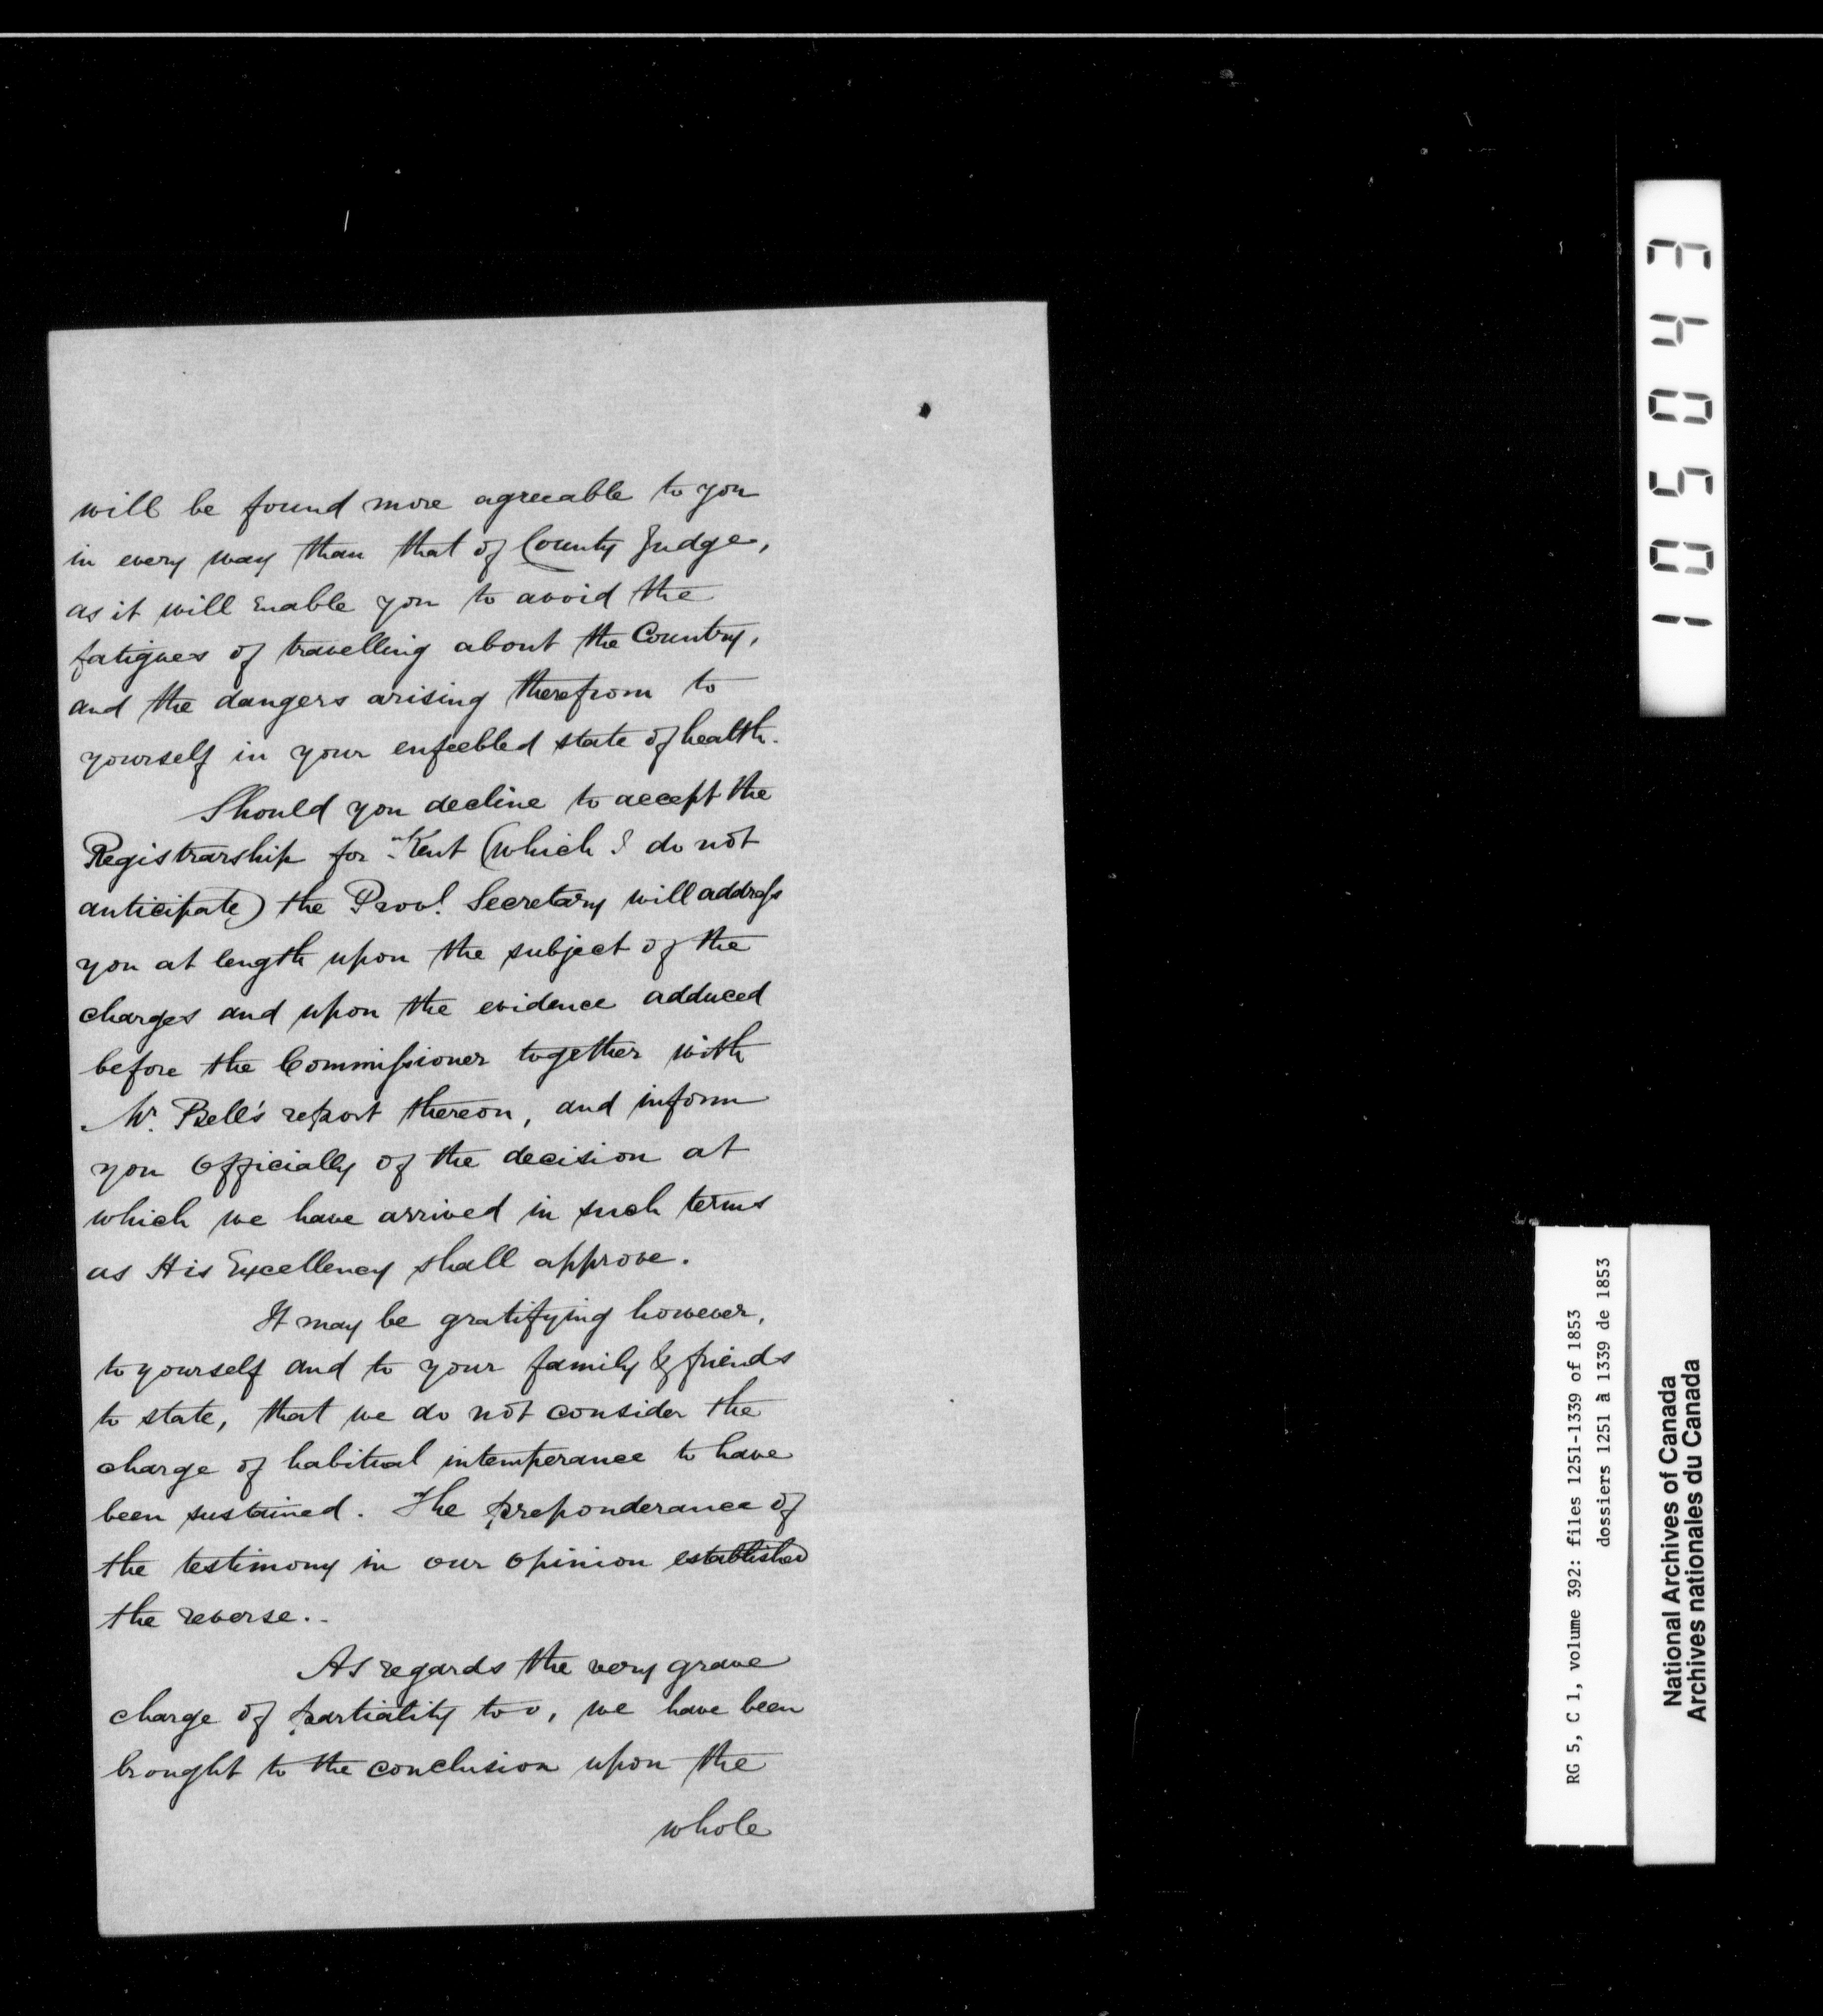 will be found more agreeable to you
in every way than that of County Judge,
as it will enable you to avoid the
fatigues of travelling about the Country,
and the dangers arising therefrom to
yourself in your enfeebled state of health.
Should you decline to accept the
Registrarship for Kent (which I do not
anticipate) the Provl. Secretary will address
you at length upon the subject of the
charges and upon the evidence adduced
before the Commissioner together with
Mr. Bell's report thereon, and inform
you Officially of the decision at
which we have arrived in such terms
as His Excellency shall approve.
It may be gratifying however,
to yourself and to your family & friends
to state, that we do not consider the
charge of habitual intemperance to have
been sustained. The preponderance of
the testimony in our opinion established
the reverse..
As regards the very grave
charge of partiality too, we have been
brought to the conclusion upon the
whole
105043
RG 5, C 1, volume 392: files 1251-1339 of 1853
dossiers 1251 à 1339 de 1853
National Archives of Canada
Archives nationales du Canada